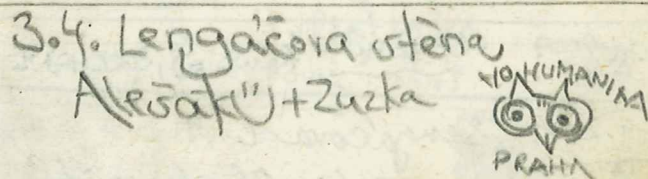 3.4. Lengáčova stěna
Alešák + Zuzka
HO HUMANITA
PRAHA